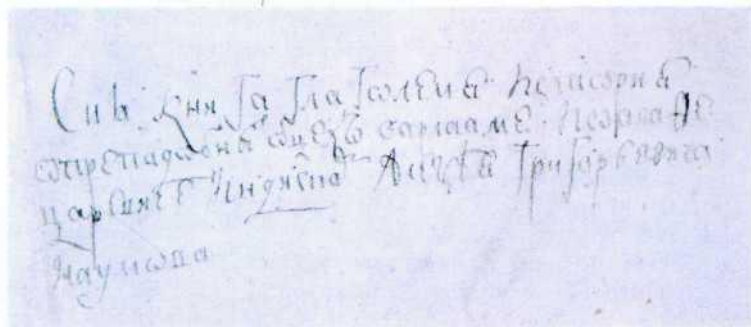 Сиѧ книга глаголемаѧ Историѧ
о преподобны ѡтцехъ варлааме Иоасафе
царевиче Индѣиско Андрѣѧ Григорьевича
Наумова